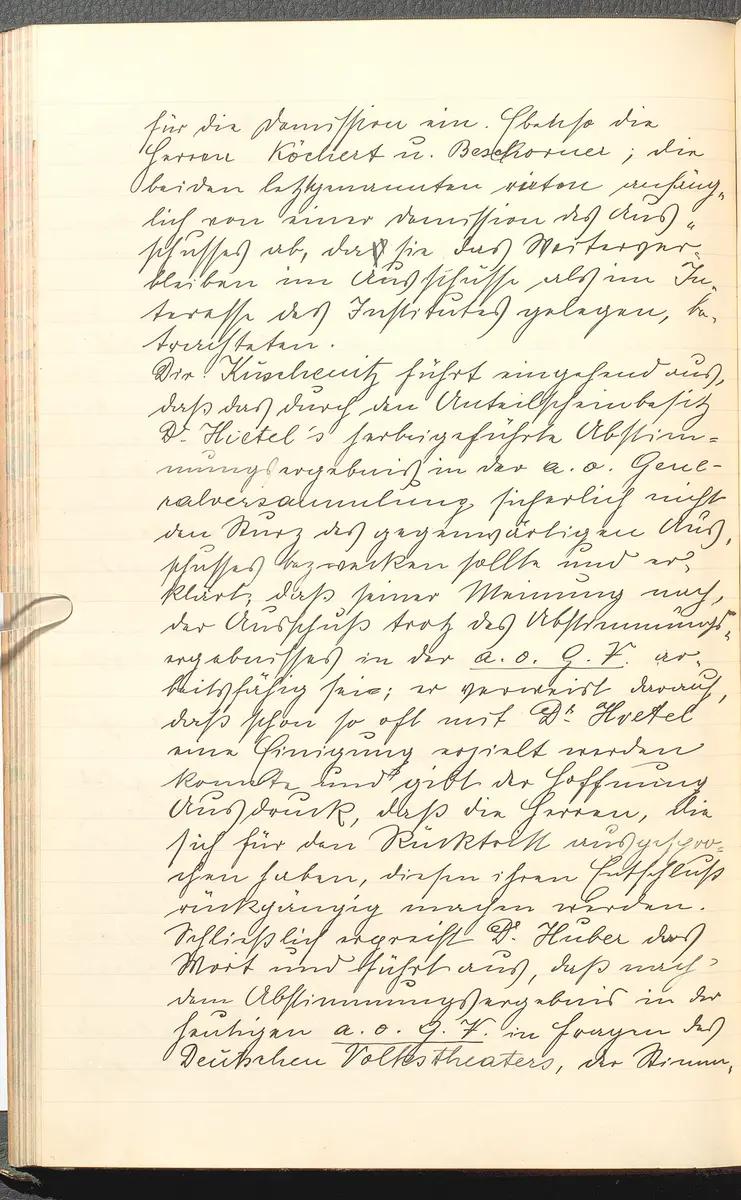 für die Demission ein. Ebenso die
Herren Köchert u. Beschorner; die
beiden letztgenannten rieten anfäng„
lich von einer Demission des Aus„
schusses ab, da sie das Weiterver„
bleiben im Ausschusse als im In„
teresse des Institutes gelegen, be„
trachteten.
Dir. Kuschenitz führt eingehend aus,
daß das durch den Anteilscheinbesitz
Dr. Hietel's herbeigeführte Abstim=
mungsergebnis in der a. o. Gene-
ralversammlung sicherlich nicht
den Sturz des gegenwärtigen Aus„
schusses bezwecken sollte und er„
klärt, daß seiner Meinung nach,
der Ausschuß trotz des Abstimmungs„
ergebnisses in der a. o. G. V. ar„
beitsfähig sei; er verweist darauf,
daß schon so oft mit Dr. Hietel
eine Einigung erzielt werden
konnte und gibt der Hoffnung
Ausdruck, daß die Herren, die
sich für den Rücktritt ausgespro=
chen haben, diesen ihren Entschluß
rückgängig machen werden.
Schließlich ergreift Dr. Huber das
Wort und führt aus, daß nach
dem Abstimmungsergebnis in der
heutigen a. o. G. V. in Fragen des
Deutschen Volkstheaters, der Stimm„